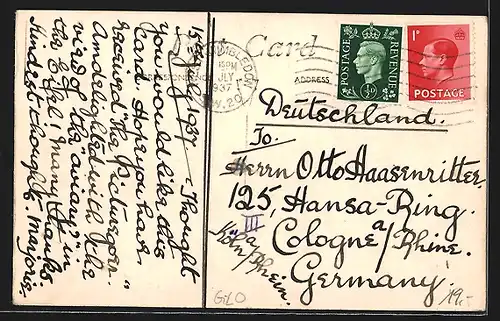 15 July 1937 - Thought
you would like this
card. Hope you have
received "the Pictorgram"
Am delighted with the
view of the aviary in
the Eifel! Many thanks.
Kindest thoughts, Marjorie.
Card
CORRESPONDENCE
ADDRESS
WIMBLEDON
15PM
JLY
1937
S.W.20
POSTAGE
REVENUE
½D
1D
POSTAGE
Deutschland.
To.
Herrn Otto Haasenritter.
125, Hansa-Ring.
Cologne a/Rhine.
III
Köln a/Rhein.
Germany.
GiLO
19.-